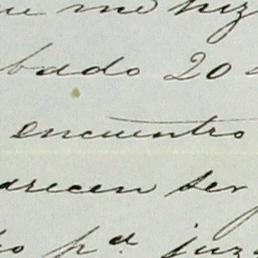 ue me hiz
bado 20
encuentro
arecen ser
pª juz